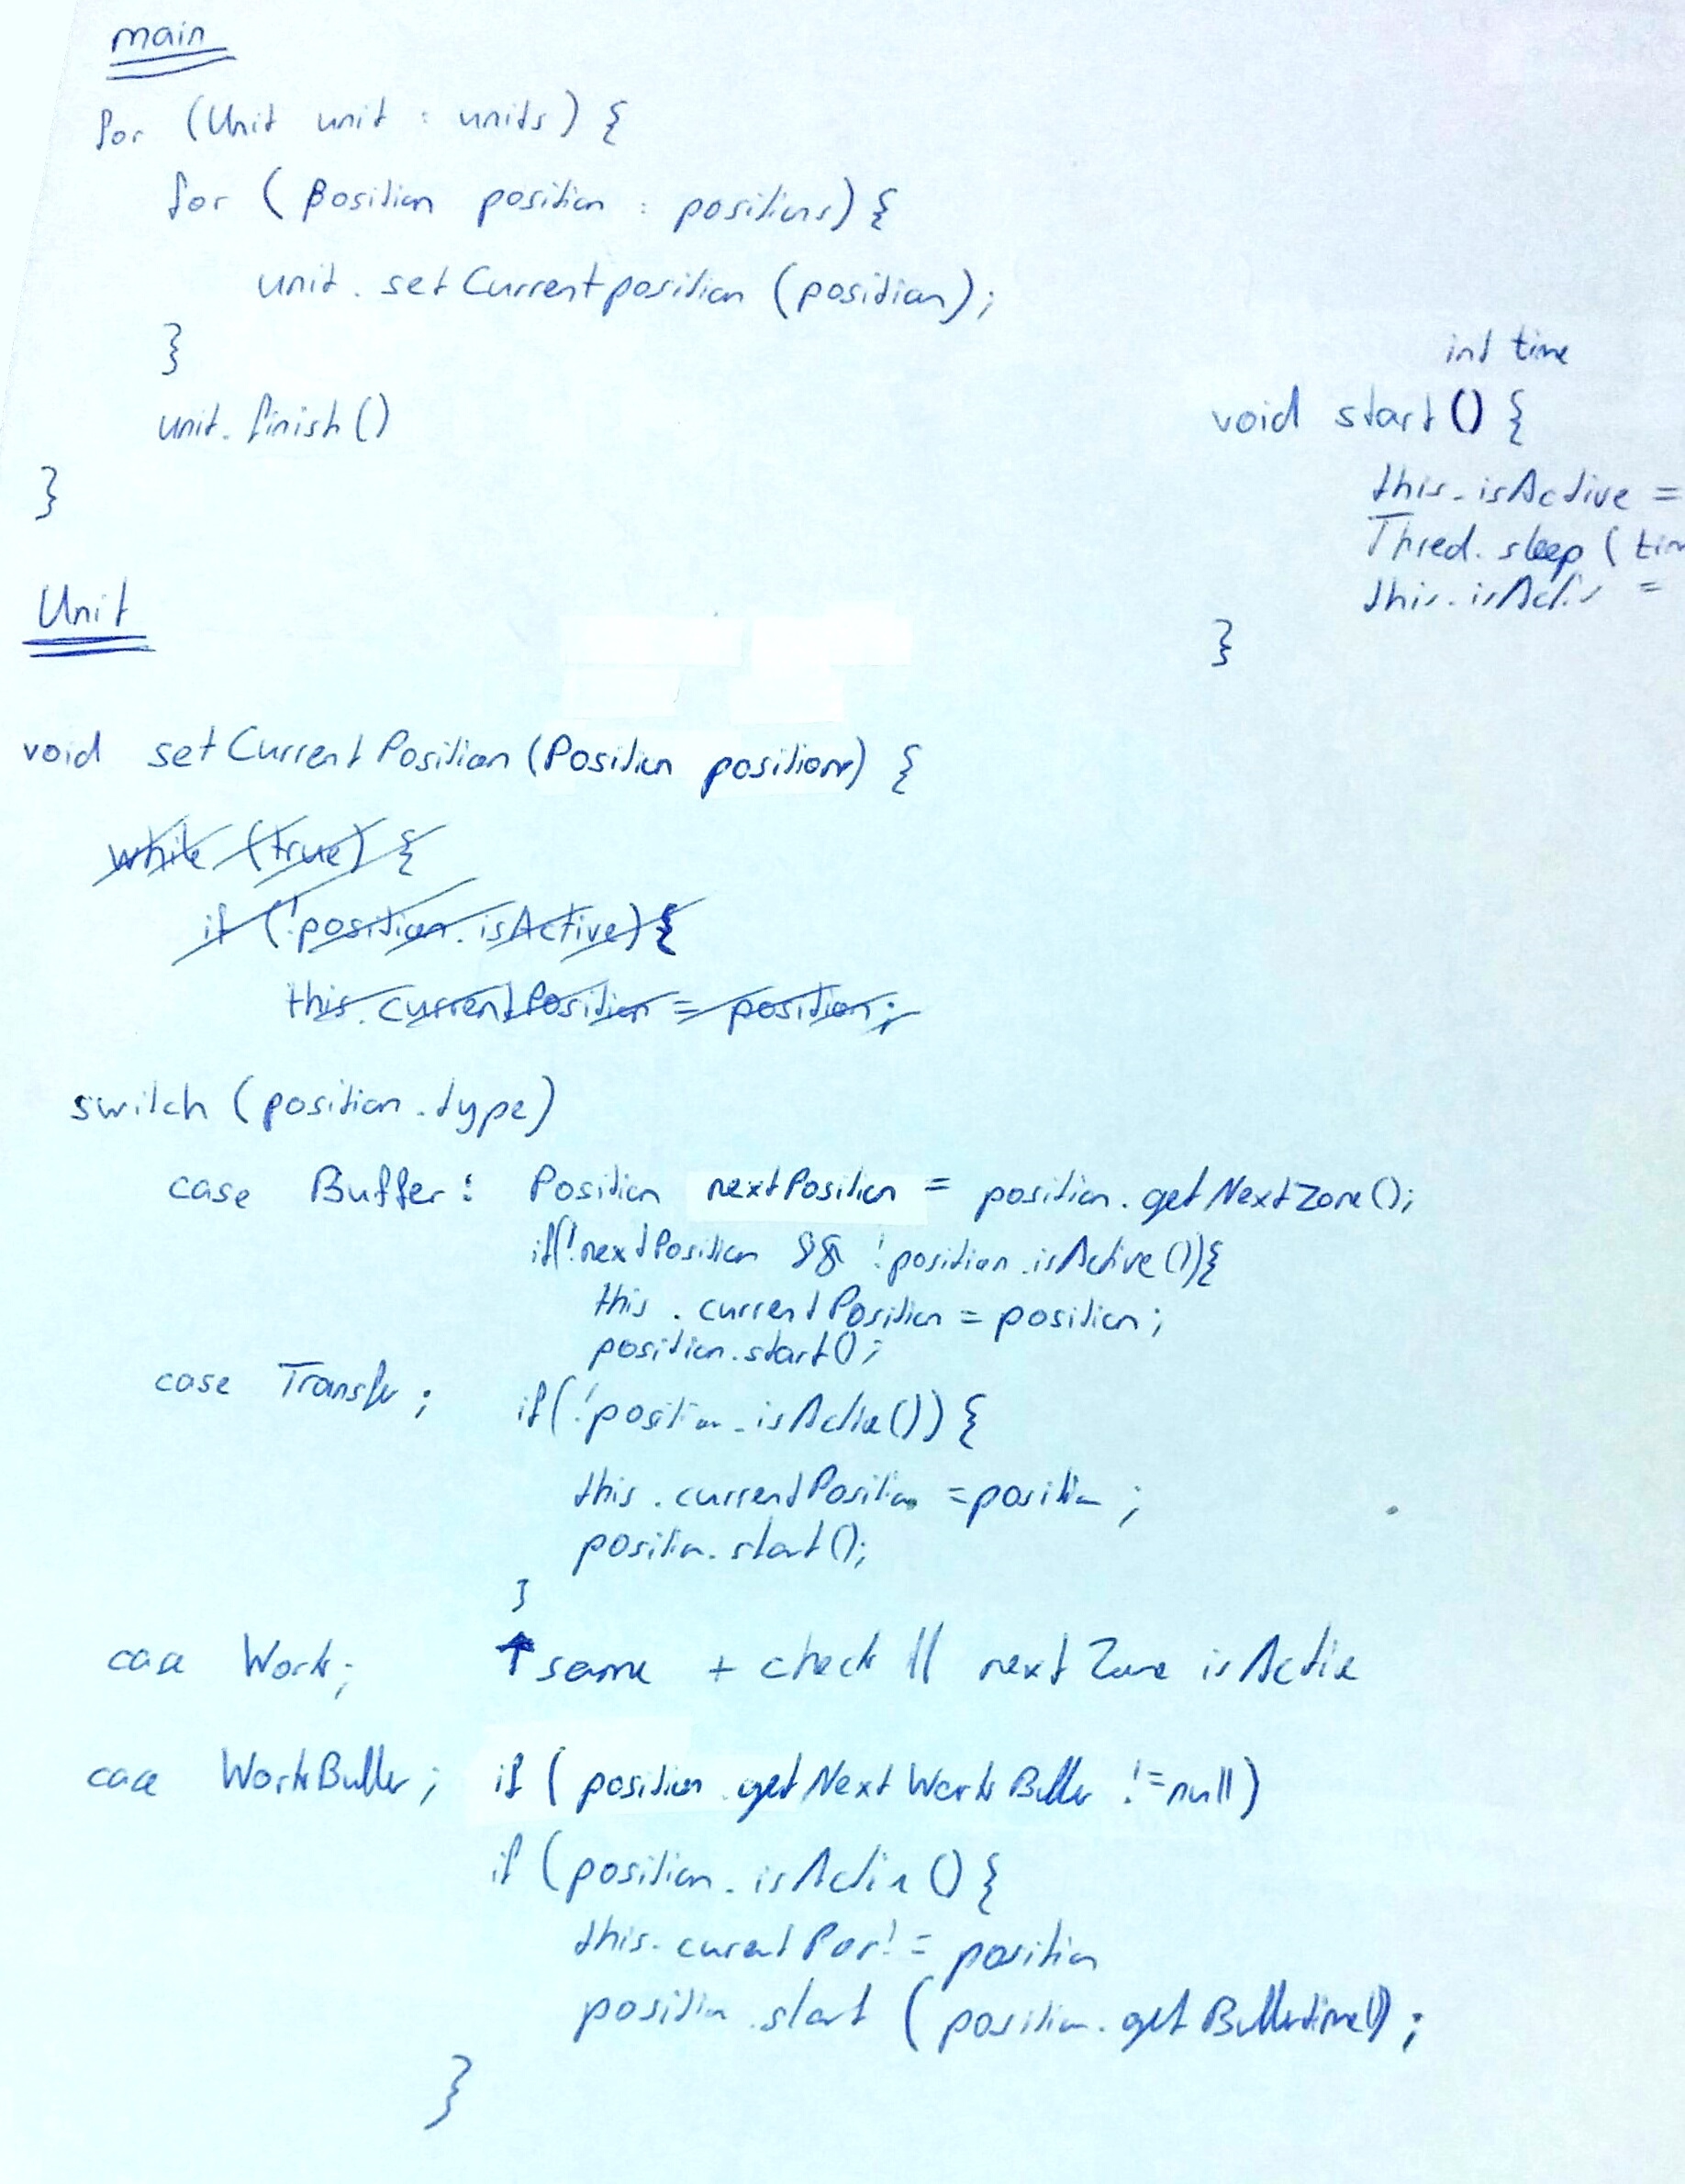 main
for (Unit unit : units) {
for (Position position : positions) {
unit.setCurrentposition (position);
}
unit.finish()
}
int time
void start () {
this.isActive =
Thred.sleep (tim
this.isActiv =
}
Unit
void setCurrentPosition (Position position) {
while (true) {
if (!position.isActive) {
this.currentPosition = position;
switch (position.type)
case Buffer: Position nextPosition = position.getNextZone();
if(!nextPosition && !position.isActive()){
this.currentPosition = position;
position.start();
case Transfer; if(!position.isActive()) {
this.currentPosition = position;
position.start();
}
case Work; ↑ same + check || next Zone isActive
case WorkBuffer; if (position.getNextWorkBuffer != null)
if (position.isActive () {
this.curentPos! = position
position.start (position.getBuffertime());
}